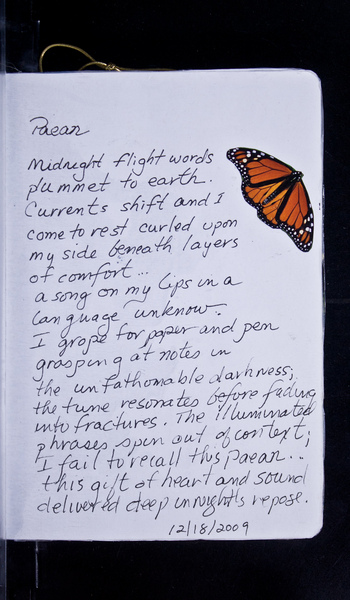 Paean
Midnight flight words
plummet to earth.
Currents shift and I
come to rest curled upon
my side beneath layers
of comfort...
a song on my lips in a
language unknow.
I grope for paper and pen
grasping at notes in
the unfathomable darkness;
the tune resonates before fading
into fractures. The illuminated
phrases spin out of context;
I fail to recall this paean...
this gift of heart and sound
delivered deep in night's repose.
12/18/2009